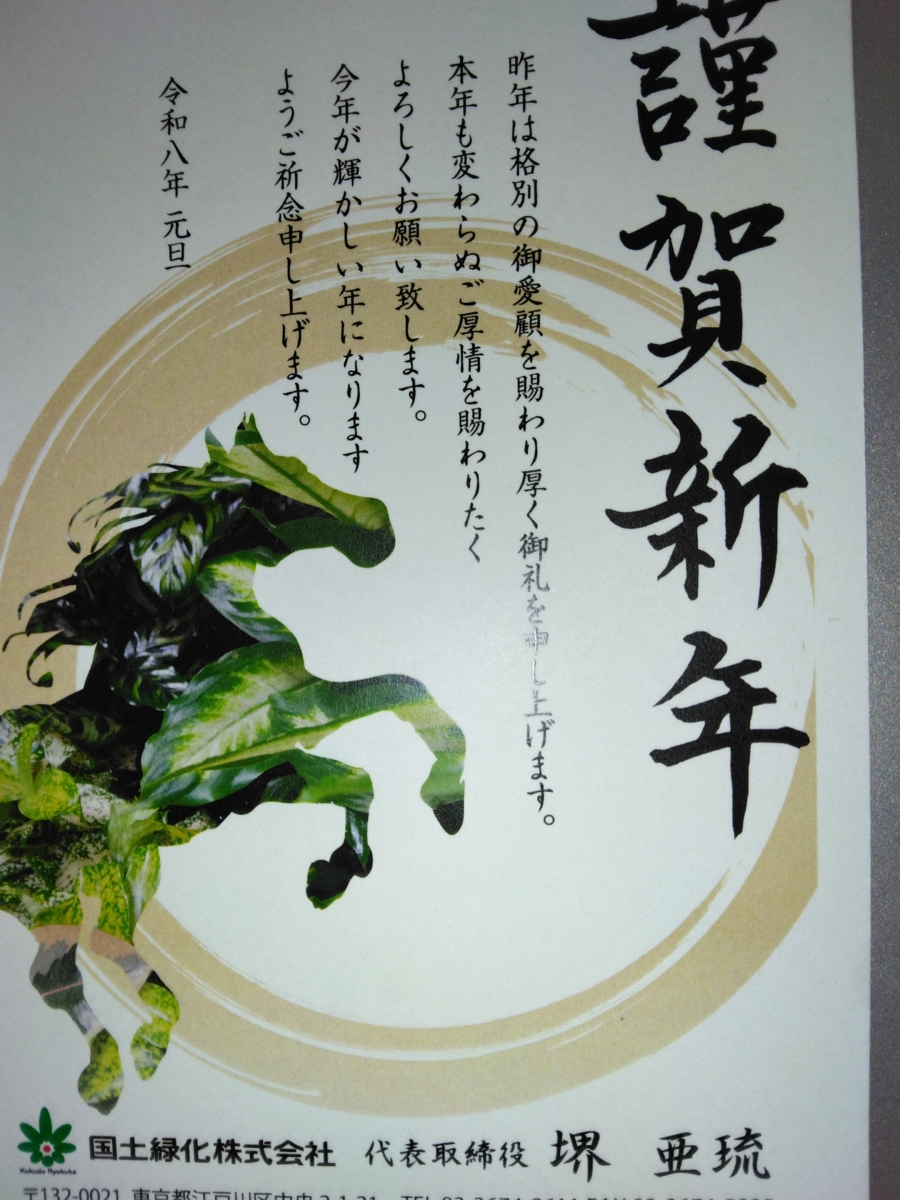 謹賀新年
昨年は格別の御愛顧を賜わり厚く御礼を申し上げます。
本年も変わらぬご厚情を賜わりたく
よろしくお願い致します。
今年が輝かしい年になります
ようご祈念申し上げます。
令和八年 元旦
Kokudo Ryokuka
国土緑化株式会社 代表取締役 堺 亜琉
〒132-0021 東京都江戸川区中央